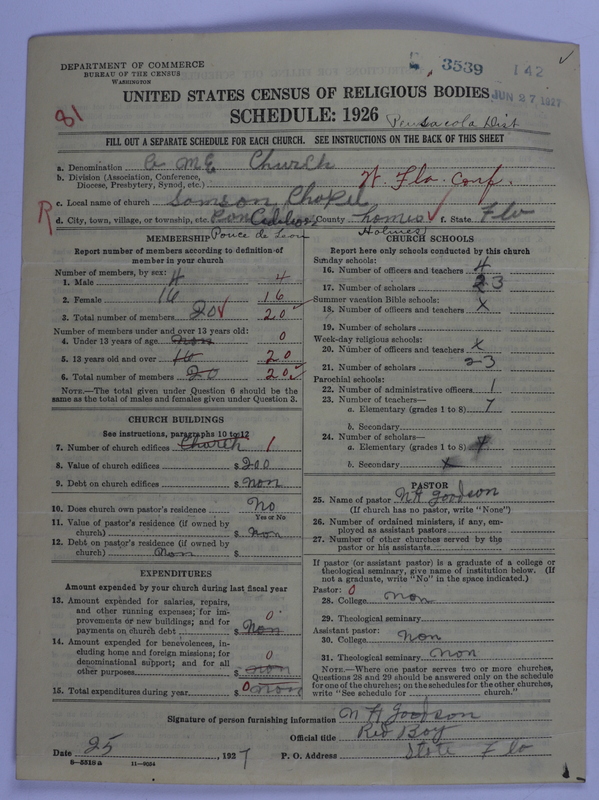 DEPARTMENT OF COMMERCE
BUREAU OF THE CENSUS
WASHINGTON
3539 142
JUN 27 1927
81
UNITED STATES CENSUS OF RELIGIOUS BODIES
SCHEDULE: 1926
Pensacola Dist
FILL OUT A SEPARATE SCHEDULE FOR EACH CHURCH. SEE INSTRUCTIONS ON THE BACK OF THIS SHEET
a. Denomination A M E Church
b. Division (Association, Conference, Diocese, Presbytery, Synod, etc.) W. Fla. Conf.
c. Local name of church Somson Chapel
R
d. City, town, village, or township, etc. County homes f. State Flo
Ponce de Leon Holmes
MEMBERSHIP
Report number of members according to definition of member in your church
Number of members, by sex:
1. Male 4 4
2. Female 16 16
3. Total number of members 20 20
Number of members under and over 13 years old:
4. Under 13 years of age non 0
5. 13 years old and over 16 20
6. Total number of members 20 20
NOTE.—The total given under Question 6 should be the same as the total of males and females given under Question 3.
CHURCH BUILDINGS
See instructions, paragraphs 10 to 12
7. Number of church edifices Church 1
8. Value of church edifices $ 200
9. Debt on church edifices $ non
10. Does church own pastor's residence No
Yes or No
11. Value of pastor's residence (if owned by church) $ non
12. Debt on pastor's residence (if owned by church) non $
EXPENDITURES
Amount expended by your church during last fiscal year
13. Amount expended for salaries, repairs, and other running expenses; for improvements or new buildings; and for payments on church debt $ non 0
14. Amount expended for benevolences, including home and foreign missions; for denominational support; and for all other purposes $ non 0
15. Total expenditures during year $ 0 non
CHURCH SCHOOLS
Report here only schools conducted by this church
Sunday schools:
16. Number of officers and teachers 4
17. Number of scholars 23
Summer vacation Bible schools:
18. Number of officers and teachers x
19. Number of scholars
Week-day religious schools:
20. Number of officers and teachers x
21. Number of scholars 23
Parochial schools:
22. Number of administrative officers 1
23. Number of teachers—
a. Elementary (grades 1 to 8) 7
b. Secondary
24. Number of scholars—
a. Elementary (grades 1 to 8)
b. Secondary x
PASTOR
25. Name of pastor N H Goodson
(If church has no pastor, write "None")
26. Number of ordained ministers, if any, employed as assistant pastors
27. Number of other churches served by the pastor or his assistants
If pastor (or assistant pastor) is a graduate of a college or theological seminary, give name of institution below. (If not a graduate, write "No" in the space indicated.)
Pastor: 0
28. College non
29. Theological seminary
Assistant pastor:
30. College non
31. Theological seminary non
NOTE.—Where one pastor serves two or more churches, Questions 28 and 29 should be answered only on the schedule for one of the churches; on the schedules for the other churches, write "See schedule for church."
Signature of person furnishing information N H Goodson
Official title Red Boy
Date 25, 1927 P. O. Address State Flo
8—5518 a 11—9024